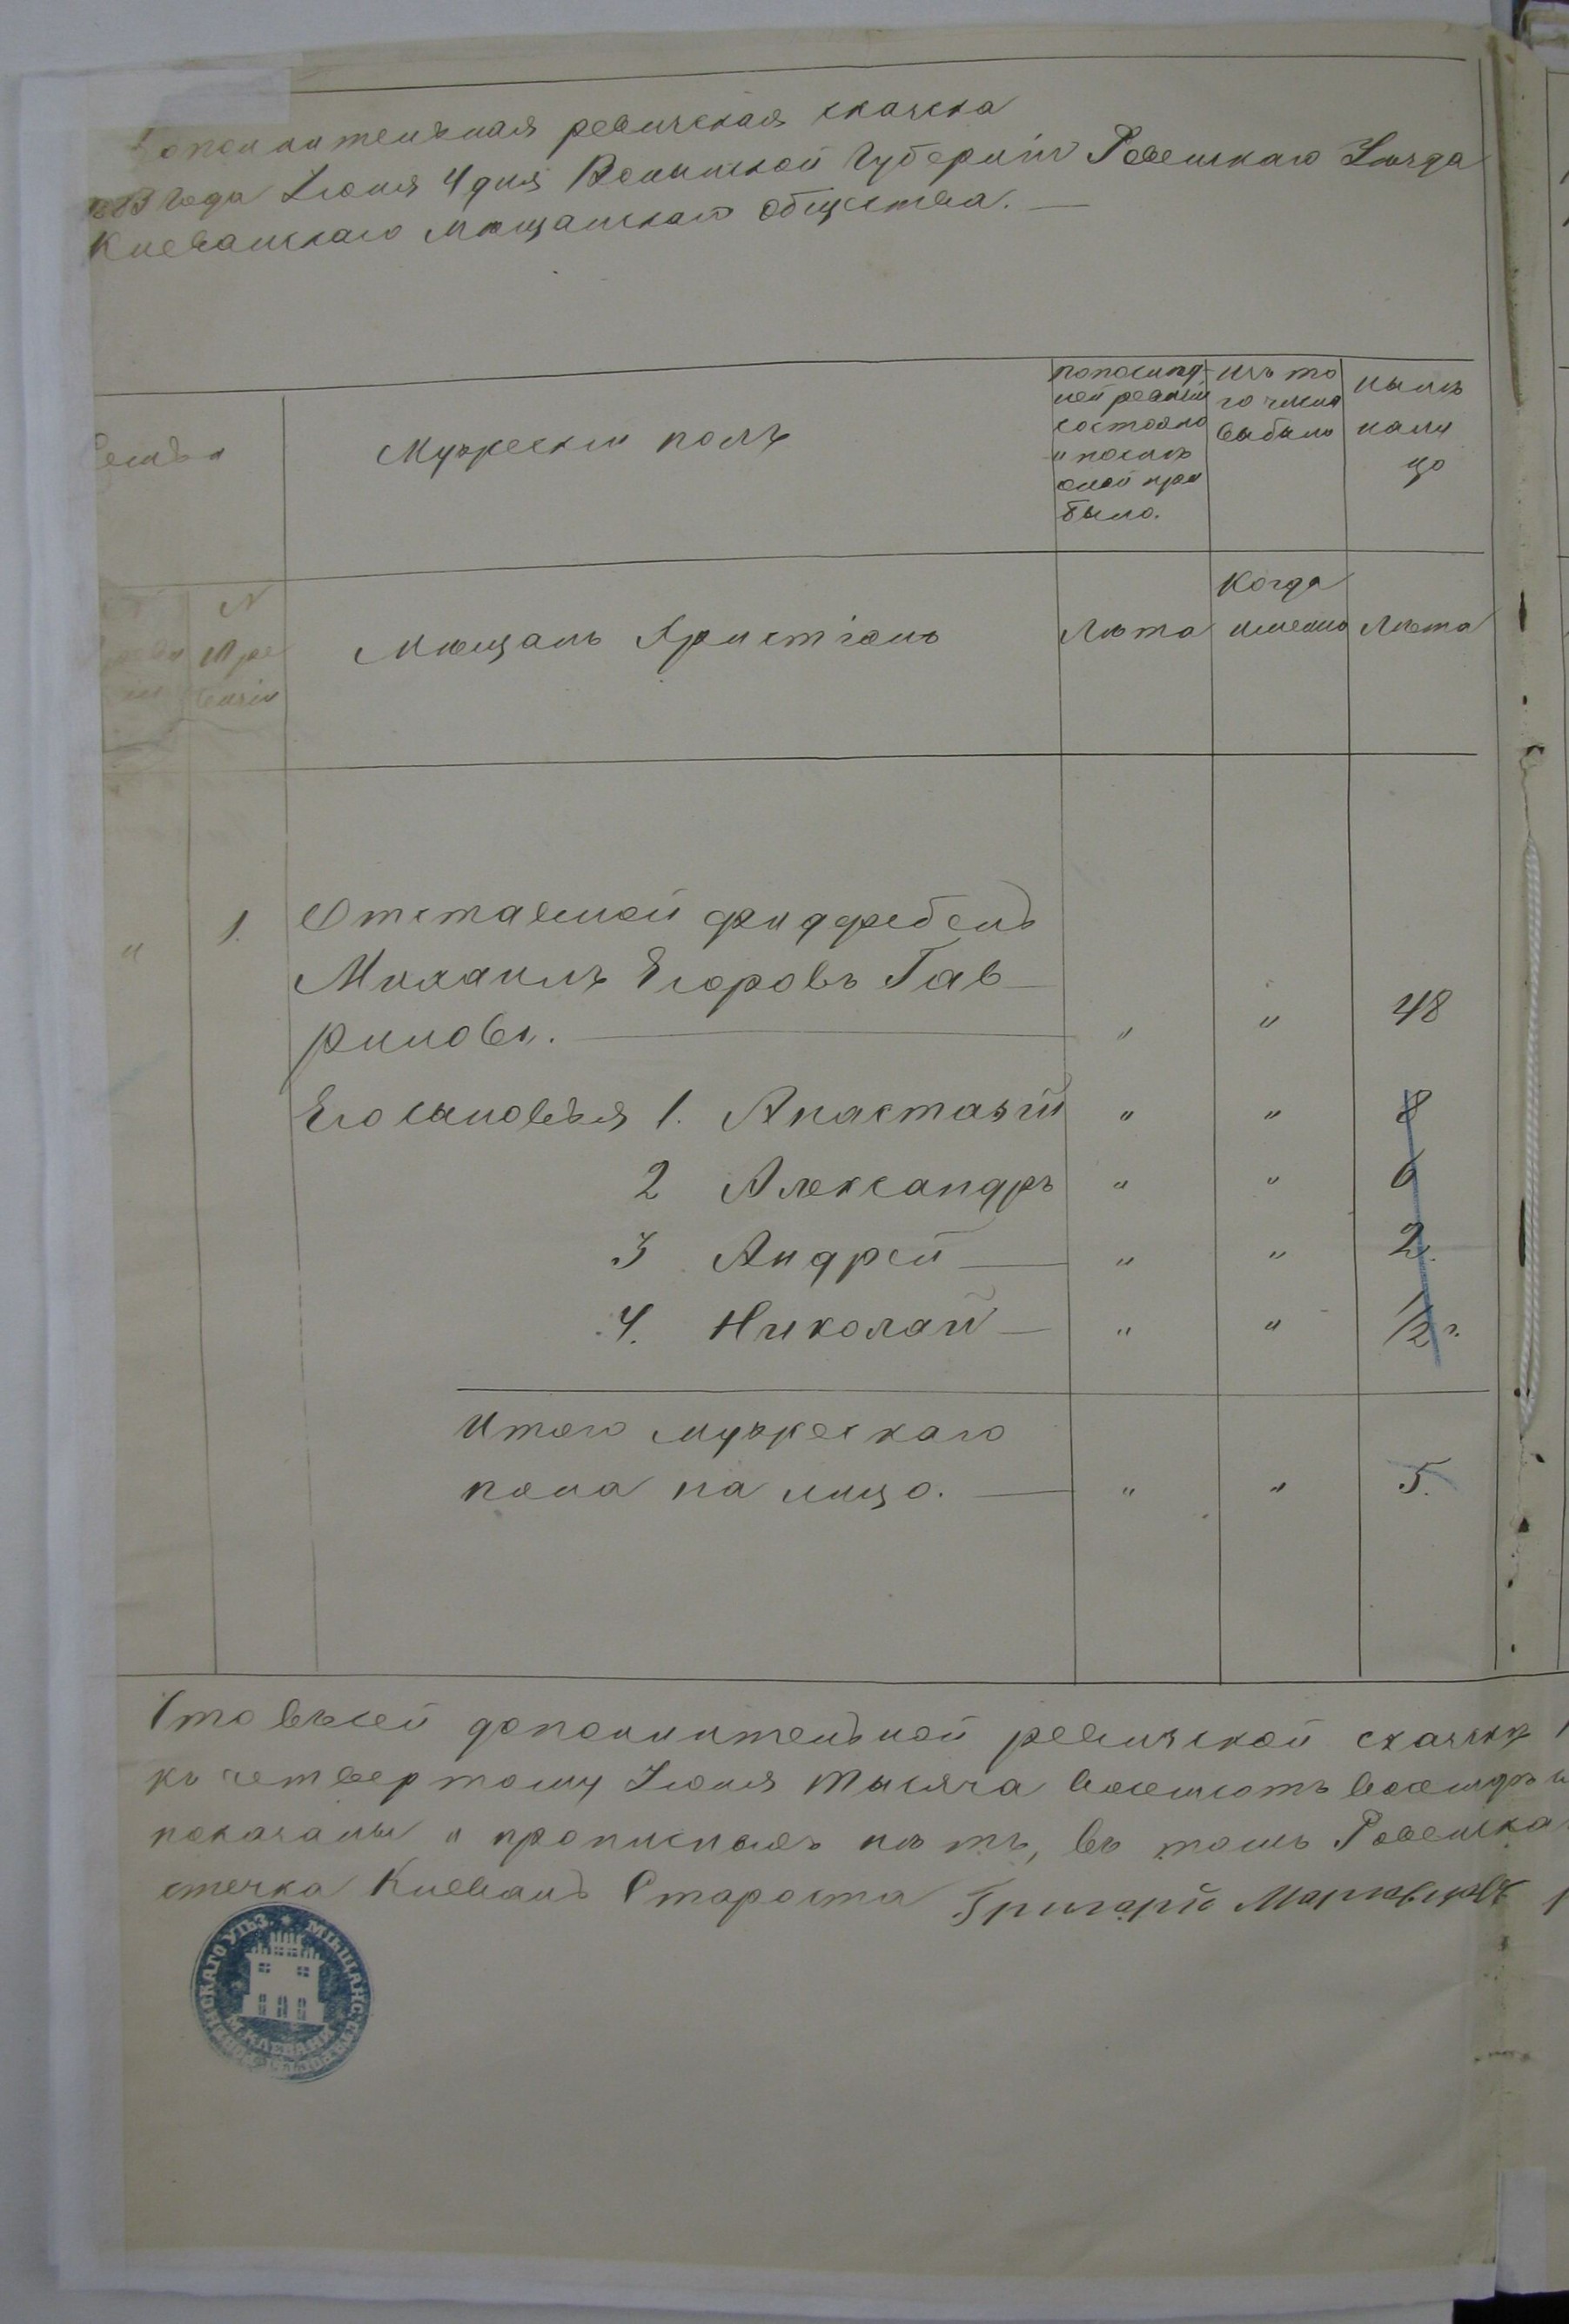 Дополнительная ревизская сказка
1883 года Іюня 4 дня Волынской Губерніи Ровенскаго Уѣзда
Клеванскаго мѣщанскаго общества.
Семья
Мужескій полъ
по послѣд-
ней ревизіи
состояло
и послѣ
оной при
было.
изъ то
го числа
выбыло
нынѣ
нали
цо
N
Мѣщанъ Христіанъ
Лѣта
Когда
именно
Лѣта
" 1. Отставной фидфебель
Михаилъ Егоровъ Гав-
риловъ. " " 48
Его сыновья 1. Анастазій " " 8
2 Александръ " " 6
3 Андрей " " 2.
4. Николай " " 1/2 г.
Итого мужескаго
пола на лицо. " " 5.
Что въ сей дополнительной ревизской сказкѣ
къ четвертому Іюня тысяча восемсотъ восемдъ
показаны и прописныхъ нѣтъ, въ томъ Ровенска
стечка Клевань Староста Григорій
СКАГО УѢЗ. * МѢЩАНС
М. КЛЕВАНИ